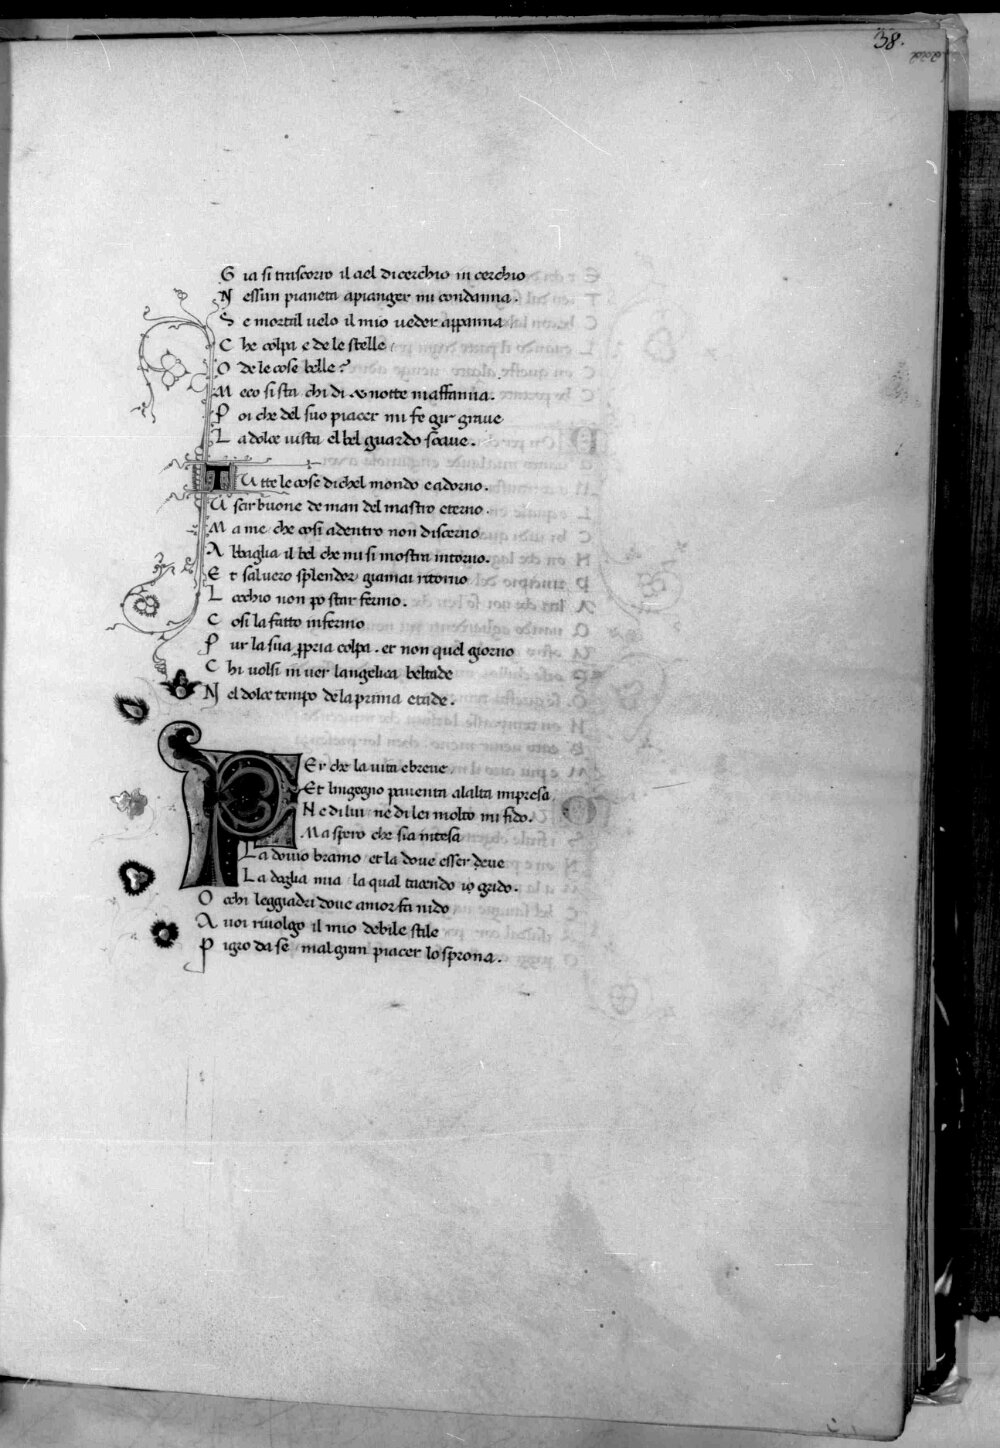 38.
G ia si trascorro il ciel di cerchio in cerchio
N essun pianeta a pianger mi condanna.
S e mortal uelo il mio ueder appanna
C he colpa e de le stelle
O de le cose belle?
M eco si sta chi di & notte maffanna.
P oi che del suo piacer mi fe gir graue
L a dolce uista el bel guardo soaue.
T Utte le cose di chel mondo e adorno.
U scir buone de man del mastro eterno.
M a me che cosi adentro non discerno
A bbaglia il bel che mi si mostra intorno.
E t sal uero splendor giamai ritorno
L occhio non po star fermo.
C osi la fatto infermo
P ur la sua ppria colpa. et non quel giorno
C hi uolsi in uer langelica beltade
N el dolce tempo de la prima etade.
P Er che la uita e breue
Et lingegno pauenta a lalta impresa
N e di lui ne di lei molto mi fido.
M a spero che sia intesa
L a douio bramo et la doue esser deue
L a doglia mia la qual tacendo io grido.
O cchi leggiadri doue amor fa nido
A uoi riuolgo il mio debile stile
P igro da se mal gran piacer lo sprona.